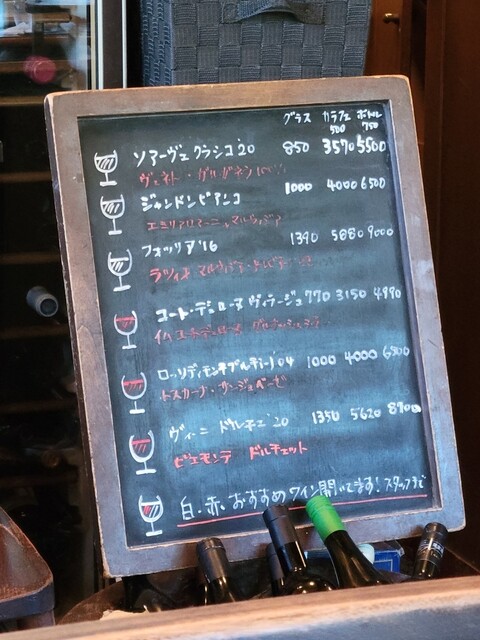 グラス カラフェ ボトル
500 750
ソアーヴェ クラシコ'20 850 3570 5500
ヴェネト・ガルガネガ
ジャンドンビアンコ 1000 4000 6500
エミリアロマーニャ
フォッリア'16 1390 5880 9000
ラツィオ
コート・デュ・ローヌ ヴィラージュ 770 3150 4990
ロッソディモンテプルチアーノ 04 1000 4000 6500
トスカーナ・サンジョベーゼ
ヴィーニ ドルチェ'20 1350 5620
ピエモンテ ドルチェット
白・赤・おすすめワイン開いてます!スタッフまで